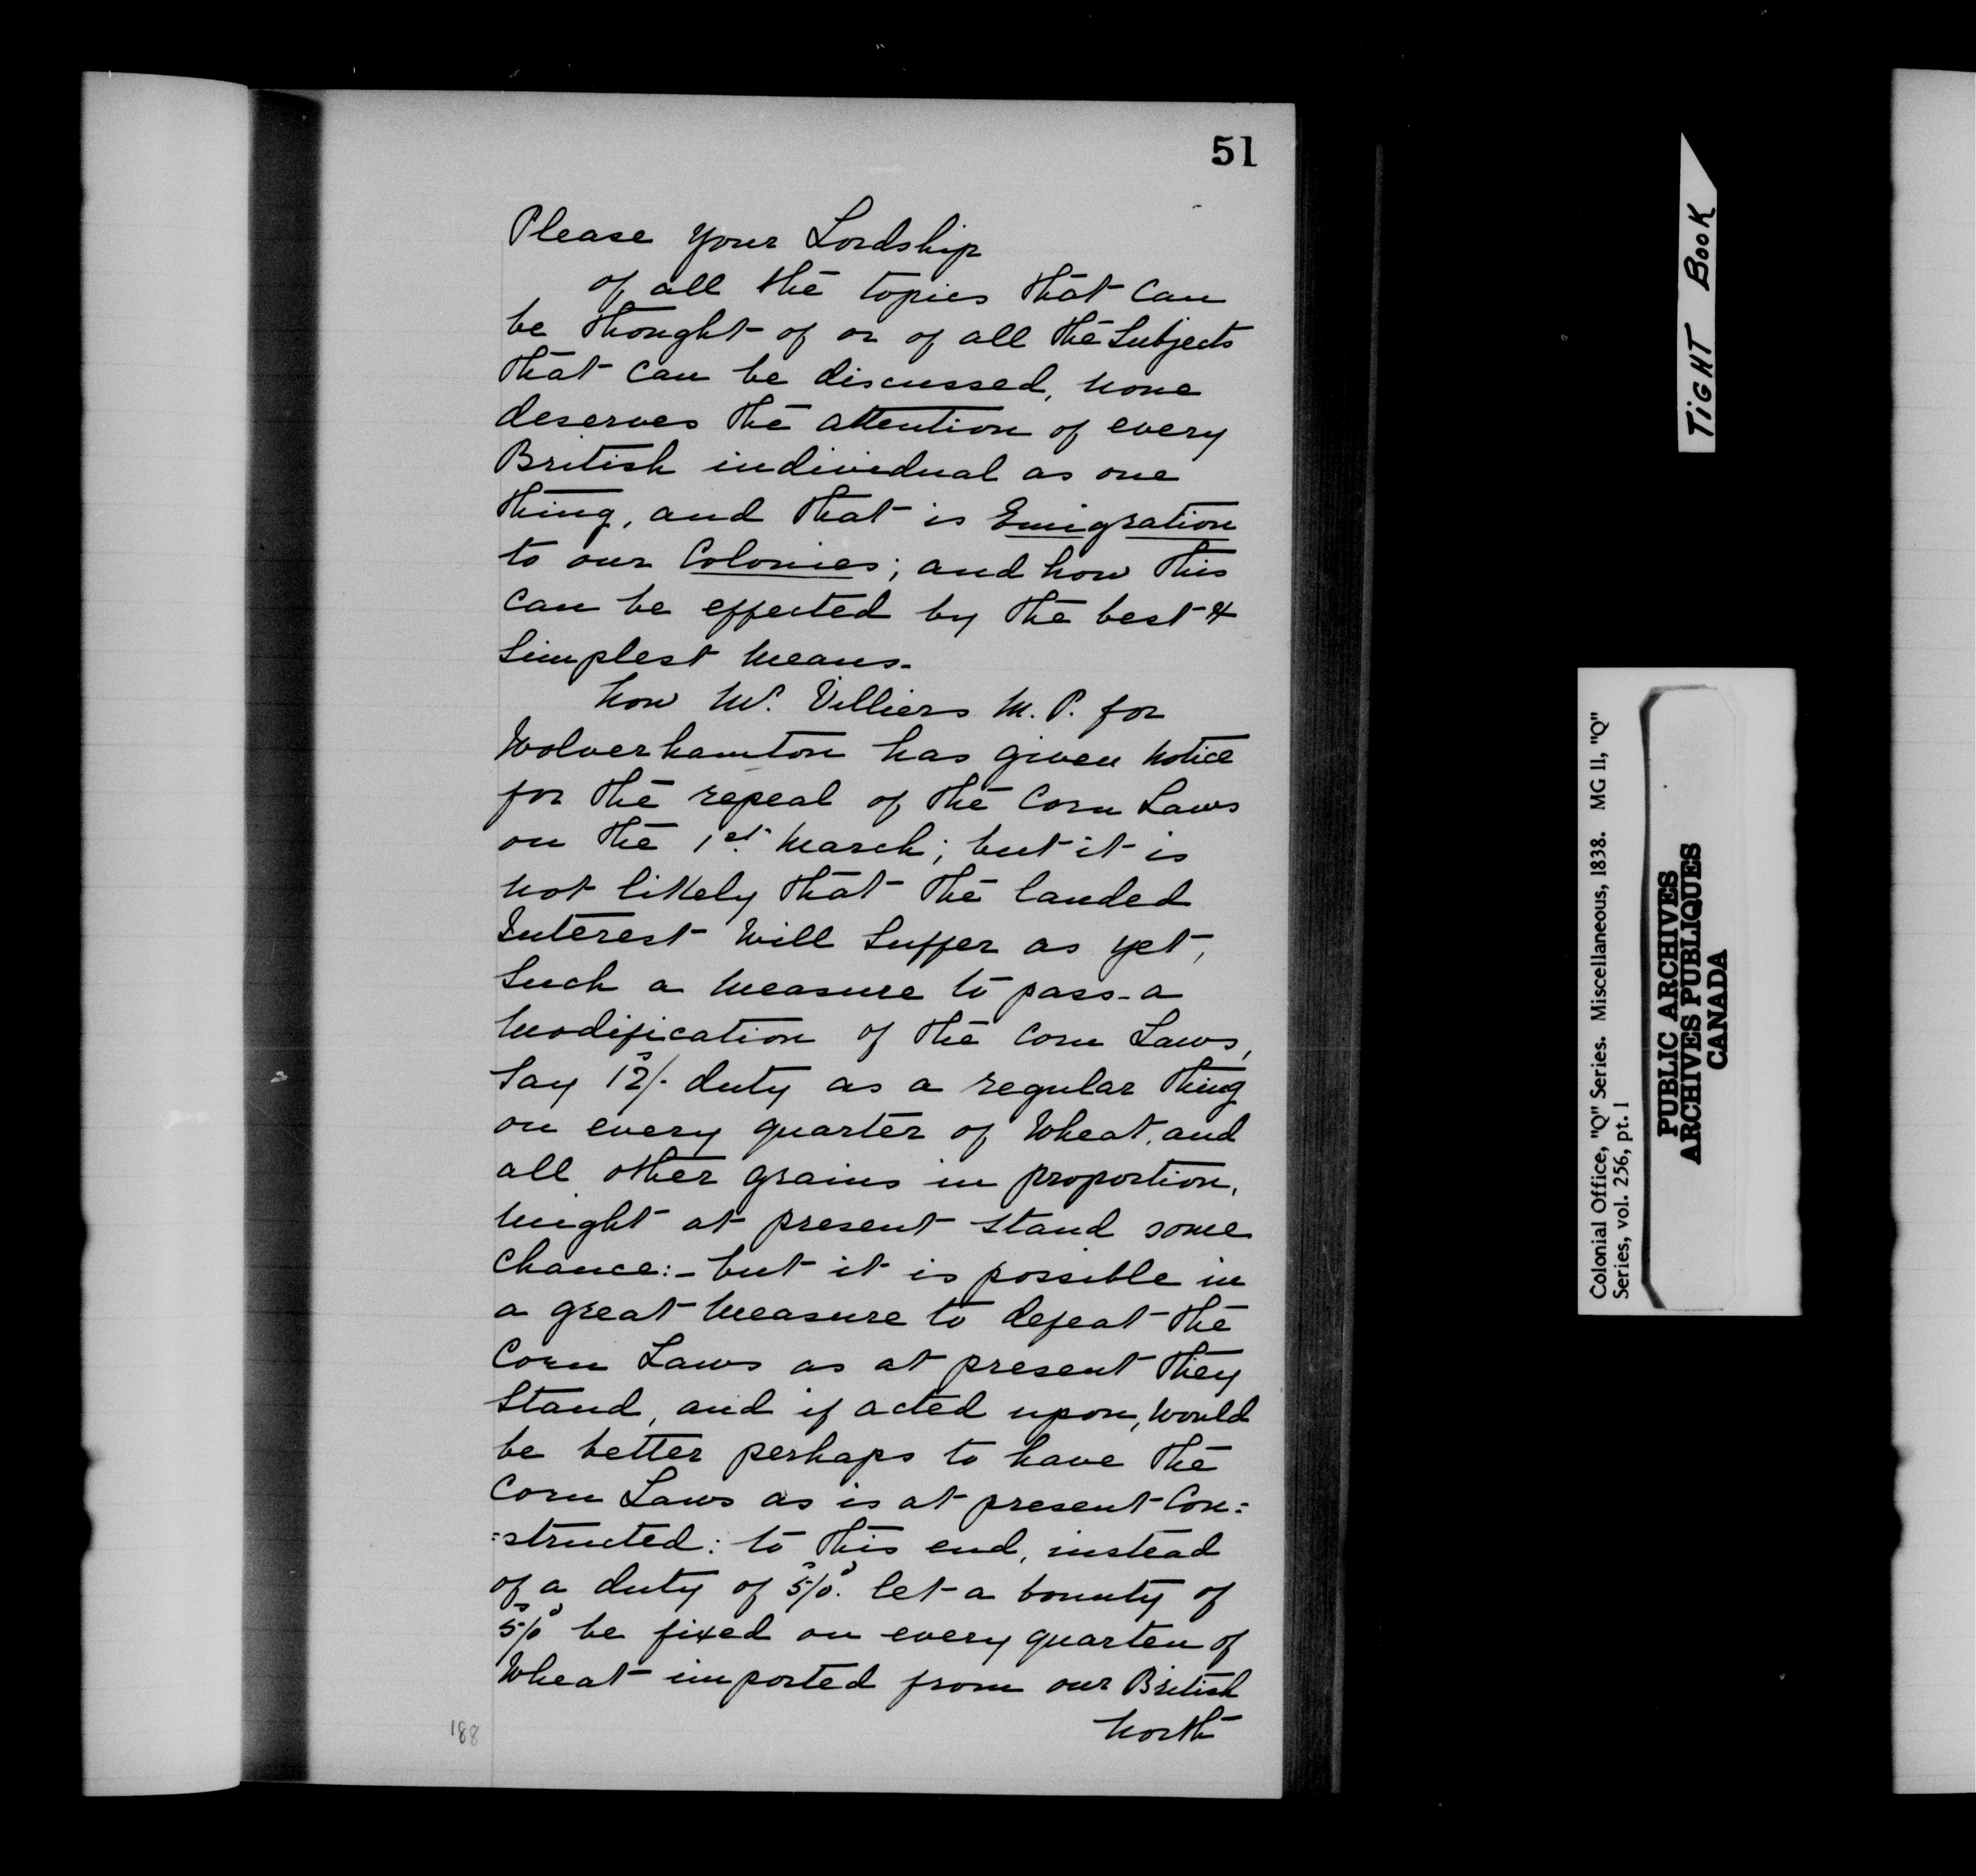 51
Please your Lordship
of all the topics that can
be thought of or of all the Subjects
that can be discussed, none
deserves the attention of every
British individual as one
thing, and that is Emigration
to our Colonies; and how this
can be effected by the best &
Simplest means.
Now Mr. Villiers M. P. for
Wolverhamton has given notice
for the repeal of the Corn Laws
on the 1st. March; but it is
not likely that the landed
Interest will Suffer as yet,
Such a measure to pass - a
modification of the Corn Laws,
Say 12s/. duty as a regular thing
on every quarter of Wheat, and
all other grains in proportion,
might at present stand some
chance: - but it is possible in
a great measure to defeat the
Corn Laws as at present they
Stand, and if acted upon, would
be better perhaps to have the
Corn Laws as is at present Con=
=structed: to this end, instead
of a duty of 5s/0d. let a bounty of
5s/0d be fixed on every quarter of
Wheat imported from our British
North
188
TIGHT BOOK
Colonial Office, "Q" Series. Miscellaneous, 1838. MG 11, "Q"
Series, vol. 256, pt. 1
PUBLIC ARCHIVES
ARCHIVES PUBLIQUES
CANADA